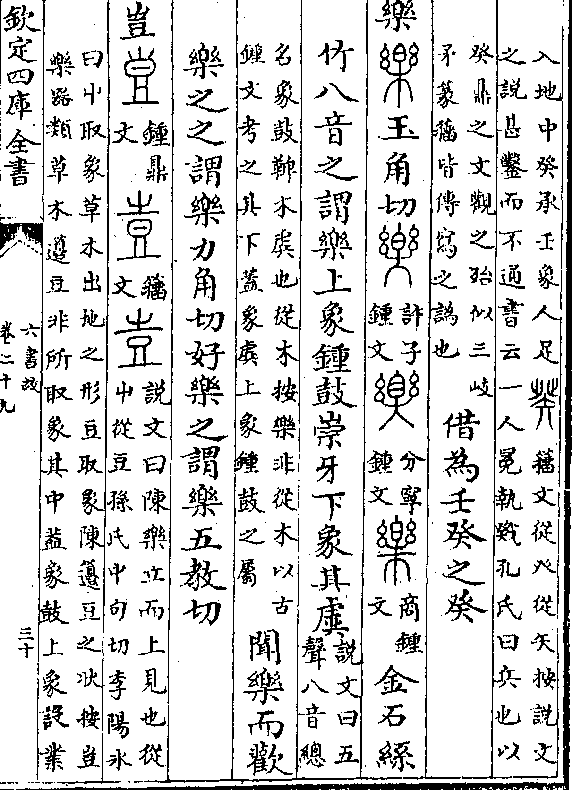 入地中癸承壬象人足癸籀文從癶從矢按說文
之說甚鑿而不通書云一人冕執戣孔氏曰兵也以
癸鼎之文觀之殆似三岐
矛篆籀皆傳寫之譌也
借為壬癸之癸
樂樂玉角切樂許子鍾文樂分寧鍾文樂商鍾文金石絲
竹八音之謂樂上象鍾鼓崇牙下象其虡說文曰五
聲八音總
名象鼓鞞木虡也從木按樂非從木以古
鍾文考之其下蓋象虡上象鍾鼓之屬
聞樂而歡
樂之之謂樂力角切好樂之謂樂五教切
豈壴鍾鼎文壴籀文壴說文曰陳樂立而上見也從
屮從豆孫氏中句切李陽冰
曰屮取象草木出地之形豆取象陳籩豆之狀按豈
樂器類草木籩豆非所取象其中蓋象鼓上象設業
欽定四庫全書
六書故
卷二十九
三十